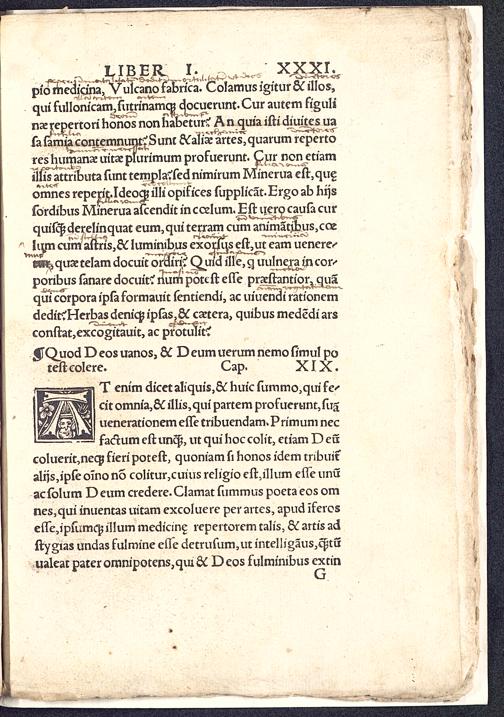 LIBER I. XXXI.
pio medicina, Vulcano fabrica. Colamus igitur & illos,
qui fullonicam, sutrinamq; docuerunt. Cur autem figuli
næ repertori honos non habetur? An quia isti diuites ua
sa samia contemnunt? Sunt & aliæ artes, quarum reperto
res humanæ uitæ plurimum profuerunt. Cur non etiam
illis attributa sunt templa? sed nimirum Minerua est, quę
omnes reperit. Ideoq; illi opifices supplicāt. Ergo ab hijs
sordibus Minerua ascendit in cœlum. Est uero causa cur
quisq̃ derelinquat eum, qui terram cum animātibus, cœ
lum cum astris, & luminibus exorsus est, ut eam uenere-
quæ telam docuit ordiri? Quid ille, q uulnera in cor-
poribus sanare docuit? num potest esse præstantior, quā
qui corpora ipsa formauit sentiendi, ac uiuendi rationem
dedit? Herbas deniq; ipsas, & cætera, quibus medēdi ars
constat, excogitauit, ac protulit?
¶ Quod Deos uanos, & Deum uerum nemo simul po
test colere. Cap. XIX.
AT enim dicet aliquis, & huic summo, qui fe-
cit omnia, & illis, qui partem profuerunt, suā
uenerationem esse tribuendam. Primum nec
factum est unq̃, ut qui hoc colit, etiam Deū
coluerit, neq; fieri potest, quoniam si honos idem tribuit̃
alijs, ipse oīno nō colitur, cuius religio est, illum esse unū
ac solum Deum credere. Clamat summus poeta eos om
nes, qui inuentas uitam excoluere per artes, apud īferos
esse, ipsumq; illum medicinę repertorem talis, & artis ad
stygias undas fulmine esse detrusum, ut intelligāus, q̃tū
ualeat pater omnipotens, qui & Deos fulminibus extin
G